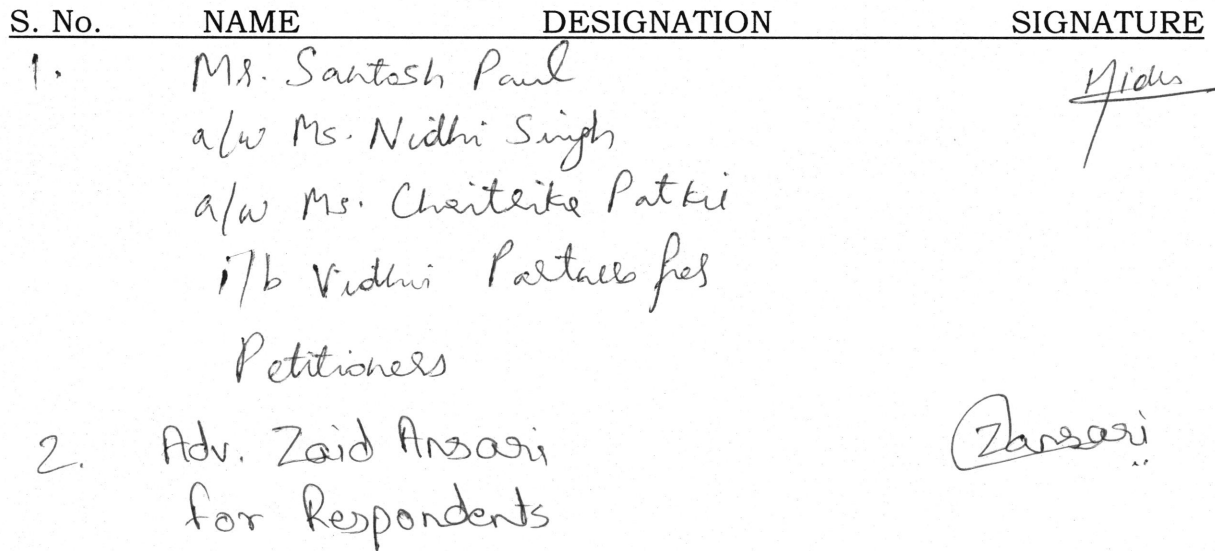 S. No. NAME DESIGNATION SIGNATURE
1. Mr. Santosh Paul
a/w Ms. Nidhi Singh
a/w Ms. Patkie
i/b Vidhi Partners for
Petitioners
2. Adv. Zaid Ansari Zansari
for Respondents